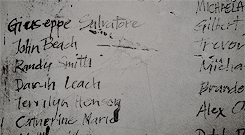 Giuseppe Salvatore
John Beach
Randy Smith
Darwin Leach
Terrilyn Henson
Catherine Marie
MICHAELA
Gilbert
Trevor
Micha
Brando
Alex C